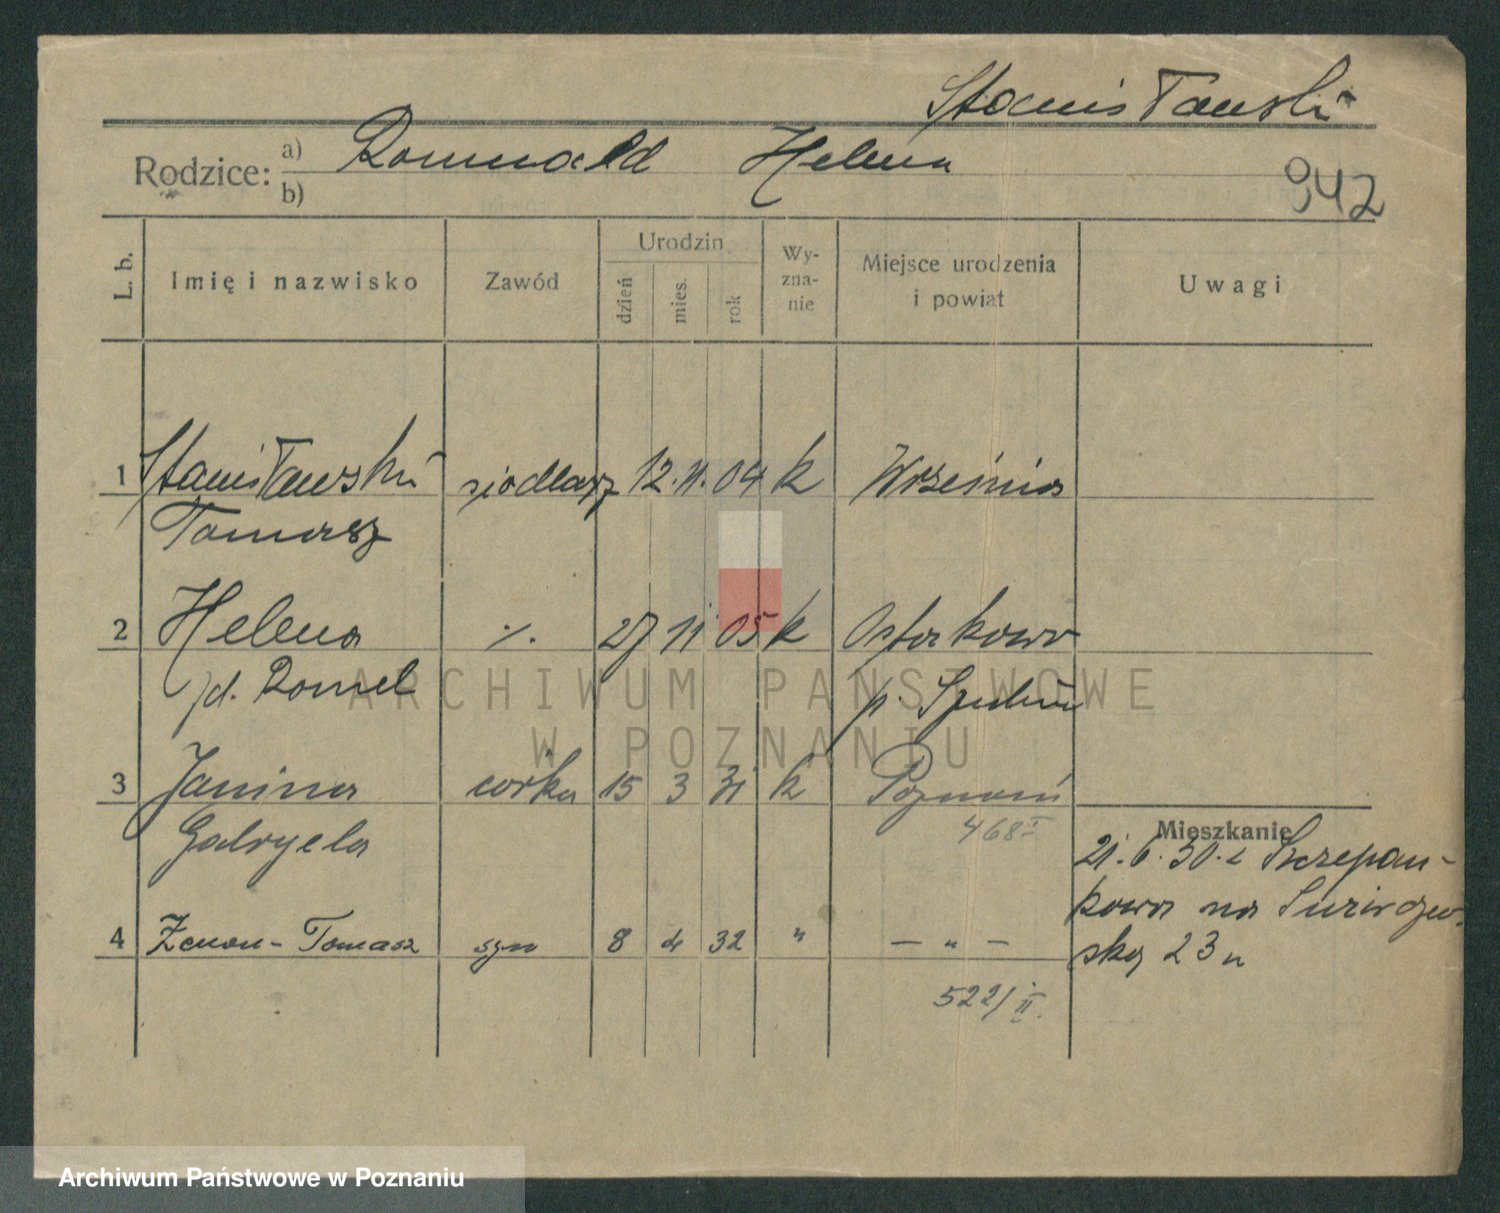 Stanisławski
Rodzice: a) Romuald Helena
b)
942
L. b. Imię i nazwisko Zawód Urodzin dzień mies. rok Wy-zna-nie Miejsce urodzenia i powiat Uwagi
1 Stanisławski siodlarz 12. 11. 04 k Września
Tomasz
2 Helena ·/. 27 11 05 k
/d. Romel p.
3 Janina córka 15 3 31 k Poznań
Gabryela 468/I
Mieszkanie
21. 6. 30. z Szczepan-
kowa na
4 Zenon - Tomasz syn 8 4 32 " — " —
ską 23 u
522/II.
ARCHIWUM PAŃSTWOWE
W POZNANIU
Archiwum Państwowe w Poznaniu